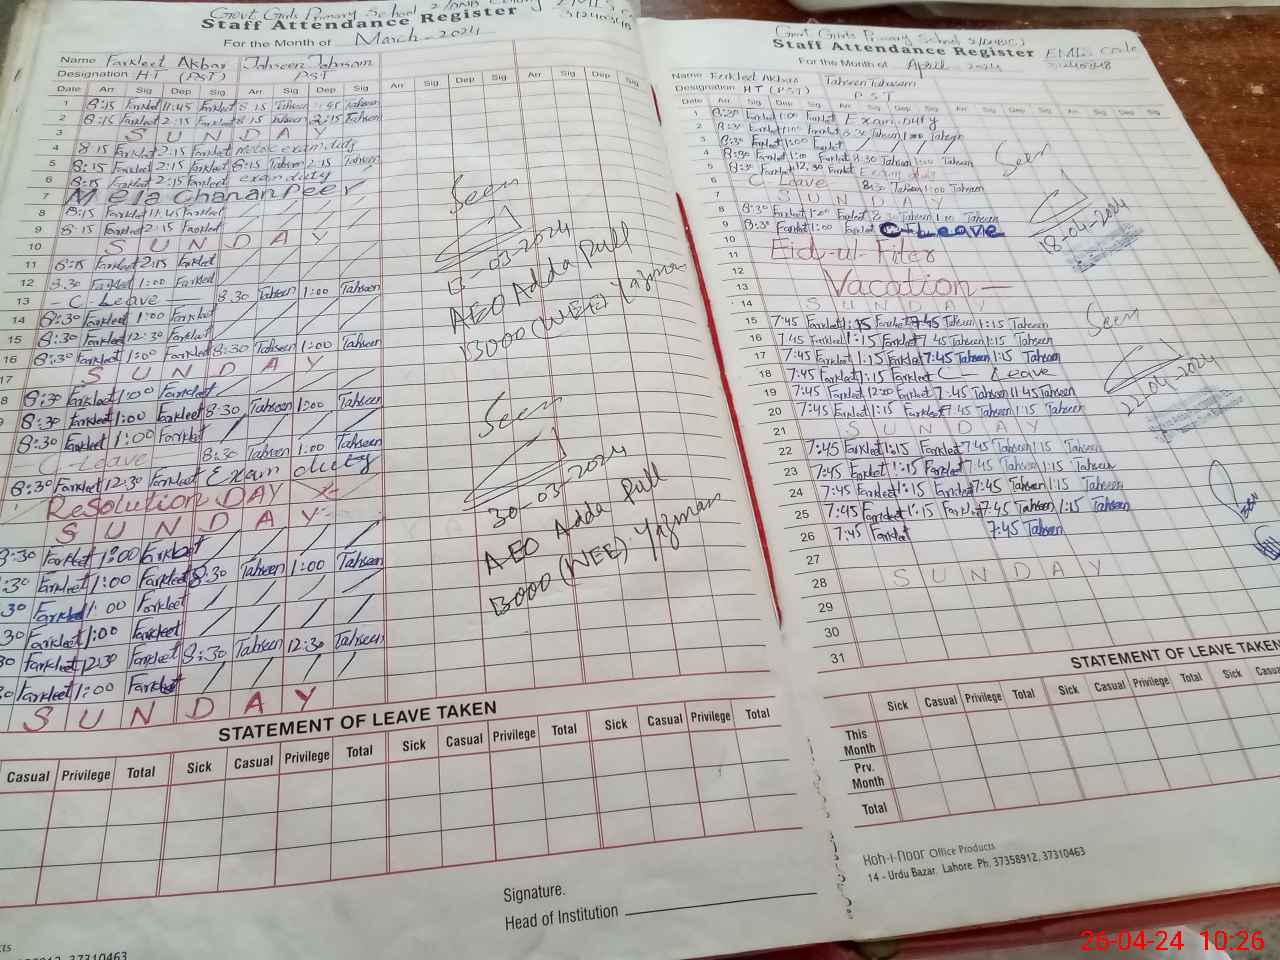 Govt Girls Primary School
Staff Attendance Register
For the Month of March-2024
Name Farkleet Akbar Tahseen Tabsum
Designation HT (PST) PST
Date Arr Sig Dep Sig Arr Sig Dep Sig Arr Sig Dep Sig Arr Sig Dep Sig
1 8:15 Farkleet 11:45 Farkleet 8:15 Tahseen 11:45 Tahseen
2 8:15 Farkleet 2:15 Farkleet 8:15 Tahseen 2:15 Tahseen
3 SUNDAY
4 8:15 Farkleet 2:15 Farkleet duty
5 8:15 Farkleet 2:15 Farkleet 8:15 Tahseen 2:15 Tahseen
6 8:15 Farkleet 2:15 Farkleet exam duty
7 Mela Chanan Peer
8 8:15 Farkleet 11:45 Farkleet
9 8:15 Farkleet 2:15 Farkleet
10 SUNDAY
11 8:15 Farkleet 2:15 Farkleet
12 8:30 Farkleet 1:00 Farkleet
13 - C-Leave - 8:30 Tahseen 1:00 Tahseen
14 8:30 Farkleet 1:00 Farkleet
15 8:30 Farkleet 12:30 Farkleet
16 8:30 Farkleet 1:00 Farkleet 8:30 Tahseen 1:00 Tahseen
17 SUNDAY
8 8:30 Farkleet 1:00 Farkleet
9 8:30 Farkleet 1:00 Farkleet 8:30 Tahseen 1:00 Tahseen
8:30 Farkleet 1:00 Farkleet
- C-Leave - 8:30 Tahseen 1:00 Tahseen
8:30 Farkleet 12:30 Farkleet Exam duty
Resolution DAY
SUNDAY
8:30 Farkleet 1:00 Farkleet
:30 Farkleet 1:00 Farkleet 8:30 Tahseen 1:00 Tahseen
30 Farkleet 1:00 Farkleet
30 Farkleet 1:00 Farkleet
30 Farkleet 12:30 Farkleet 8:30 Tahseen 12:30 Tahseen
30 Farkleet 1:00 Farkleet
SUNDAY
Seen
-03-2024
AEO Adda Pull
13000 (WEE) Yazman
Seen
30-03-2024
AEO Adda Pull
13000 (WEE) Yazman
STATEMENT OF LEAVE TAKEN
Casual Privilege Total Sick Casual Privilege Total Sick Casual Privilege Total Sick Casual Privilege Total
Signature.
Head of Institution
37310463
Govt Girls Primary School
Staff Attendance Register EMIS Code
For the Month of April-2024
Name Farkleet Akbar Tahseen Tabsum
Designation HT (PST) PST
Date Arr Sig Dep Sig Arr Sig Dep Sig Arr Sig Dep Sig Arr Sig Dep Sig
1 8:30 Farkleet 1:00 Farkleet Exam duty
2 8:30 Farkleet 1:00 Farkleet 8:30 Tahseen 1:00 Tahseen
3 8:30 Farkleet 1:00 Farkleet
4 8:30 Farkleet 1:00 Farkleet 8:30 Tahseen 1:00 Tahseen
5 8:30 Farkleet 12:30 Farkleet Exam duty
6 C-Leave 8:30 Tahseen 1:00 Tahseen
7 SUNDAY
8 8:30 Farkleet 1:00 Farkleet 8:30 Tahseen 1:00 Tahseen
9 8:30 Farkleet 1:00 Farkleet C-Leave
10
11 Eid-ul-Fiter
12
13 Vacation-
14 SUNDAY
15 7:45 Farkleet 1:15 Farkleet 7:45 Tahseen 1:15 Tahseen
16 7:45 Farkleet 1:15 Farkleet 7:45 Tahseen 1:15 Tahseen
17 7:45 Farkleet 1:15 Farkleet 7:45 Tahseen 1:15 Tahseen
18 7:45 Farkleet 1:15 Farkleet C-Leave
19 7:45 Farkleet 12:20 Farkleet 7:45 Tahseen 11:45 Tahseen
20 7:45 Farkleet 1:15 Farkleet 7:45 Tahseen 1:15 Tahseen
21 SUNDAY
22 7:45 Farkleet 1:15 Farkleet 7:45 Tahseen 1:15 Tahseen
23 7:45 Farkleet 1:15 Farkleet 7:45 Tahseen 1:15 Tahseen
24 7:45 Farkleet 1:15 Farkleet 7:45 Tahseen 1:15 Tahseen
25 7:45 Farkleet 1:15 Farkleet 7:45 Tahseen 1:15 Tahseen
26 7:45 Farkleet 7:45 Tahseen
27
28 SUNDAY
29
30
31
Seen
18-04-2024
Seen
22-04-2024
STATEMENT OF LEAVE TAKEN
Sick Casual Privilege Total Sick Casual Privilege Total Sick
This Month
Prv. Month
Total
Koh-i-Noor Office Products
14 - Urdu Bazar, Lahore. Ph. 37358912, 37310463
26-04-24 10:26